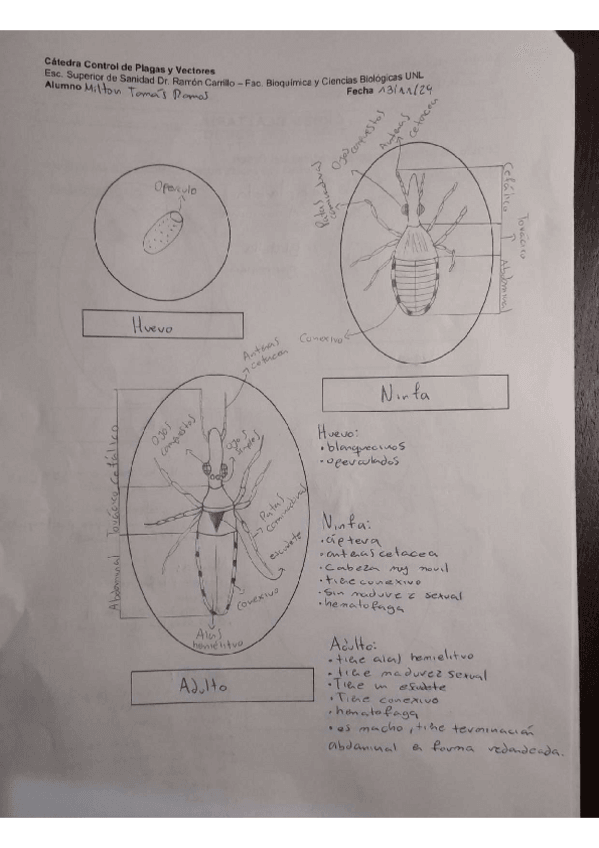 Cátedra Control de Plagas y Vectores
Esc. Superior de Sanidad Dr. Ramón Carrillo – Fac. Bioquímica y Ciencias Biológicas UNL
Alumno Milton Tomás Ramos
Fecha 13/11/24
Operculo
Huevo
Patas caminadoras
Ojos compuestos
Antenas cetacea
Cefálico
Torácico
Abdominal
Conexivo
Ninfa
Antenas cetacea
Ojos compuestos
Ojos simples
Patas caminadoras
escudete
conexivo
Alas hemielitro
Cefálico
Torácico
Abdominal
Adulto
Huevo:
• blanquecinos
• operculados
Ninfa:
• áptera
• antenas cetacea
• Cabeza muy movil
• tiene conexivo
• sin madurez sexual
• hematofaga
Adulto:
• tiene alas hemielitro
• tiene madurez sexual
• Tiene un esudete
• Tiene conexivo
• hematofaga
• es macho, tiene terminación
abdominal en forma redondeada.